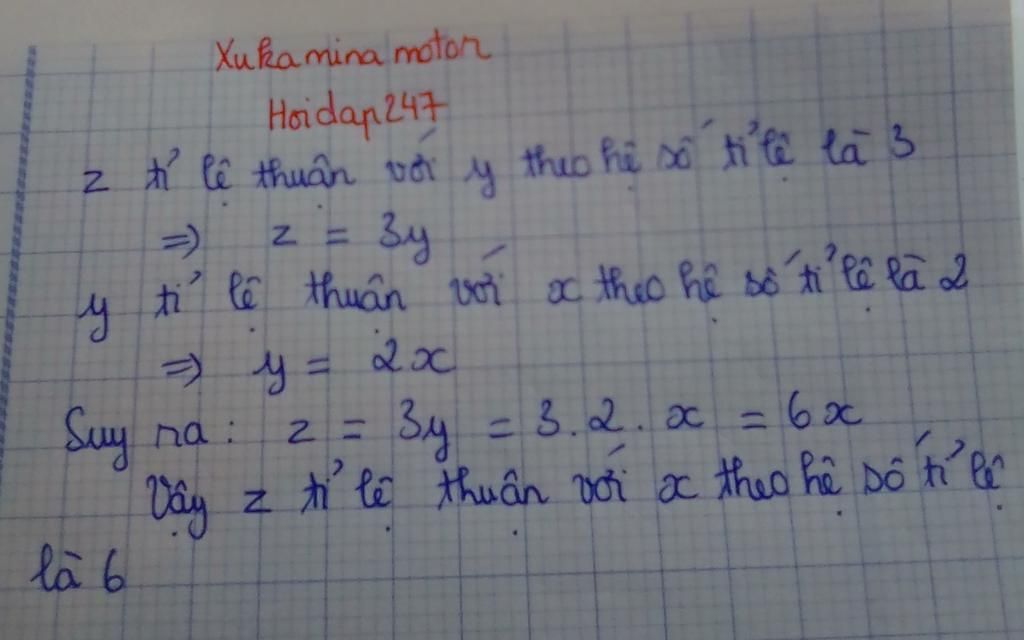 Xukaminamoton
Hoidap247
z tỉ lệ thuận với y theo hệ số tỉ lệ là 3
=> z = 3y
y tỉ lệ thuận với x theo hệ số tỉ lệ là 2
=> y = 2x
Suy ra: z = 3y = 3.2.x = 6x
Vậy z tỉ lệ thuận với x theo hệ số tỉ lệ
là 6